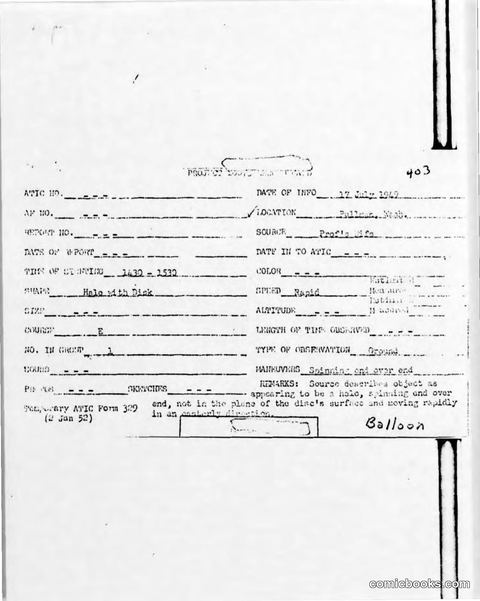 PROJECT
403
ATIC NO. - - - DATE OF INFO 17 July 1949
AF NO. - - - ✓ LOCATION Pullman, Wash.
REPORT NO. - - - SOURCE Prof's Wife
DATE OF REPORT - - - DATE IN TO ATIC - - -
TIME OF SIGHTING 1430 - 1530 COLOR - - -
SHAPE Halo with Disk SPEED Rapid
SIZE - - - ALTITUDE - - - Measured
COURSE E LENGTH OF TIME OBSERVED - - -
NO. IN GROUP 1 TYPE OF OBSERVATION Ground
SOUND - - - MANEUVERS Spinning end over end
PHOTOS - - - SKETCHES - - - REMARKS: Source describes object as
appearing to be a halo, spinning end over
end, not in the plane of the disc's surface and moving rapidly
in an easterly direction.
Temporary ATIC Form 329
(2 Jan 52)
Balloon
comicbooks.com